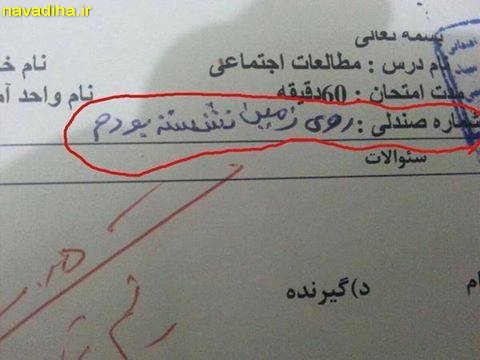 navadiha.ir
بسمه تعالی
نام درس : مطالعات اجتماعی
نام
مدت امتحان : 60دقیقه
نام واحد
شماره صندلی : روی زمین نشسته بودم
سئوالات
د)گیرنده